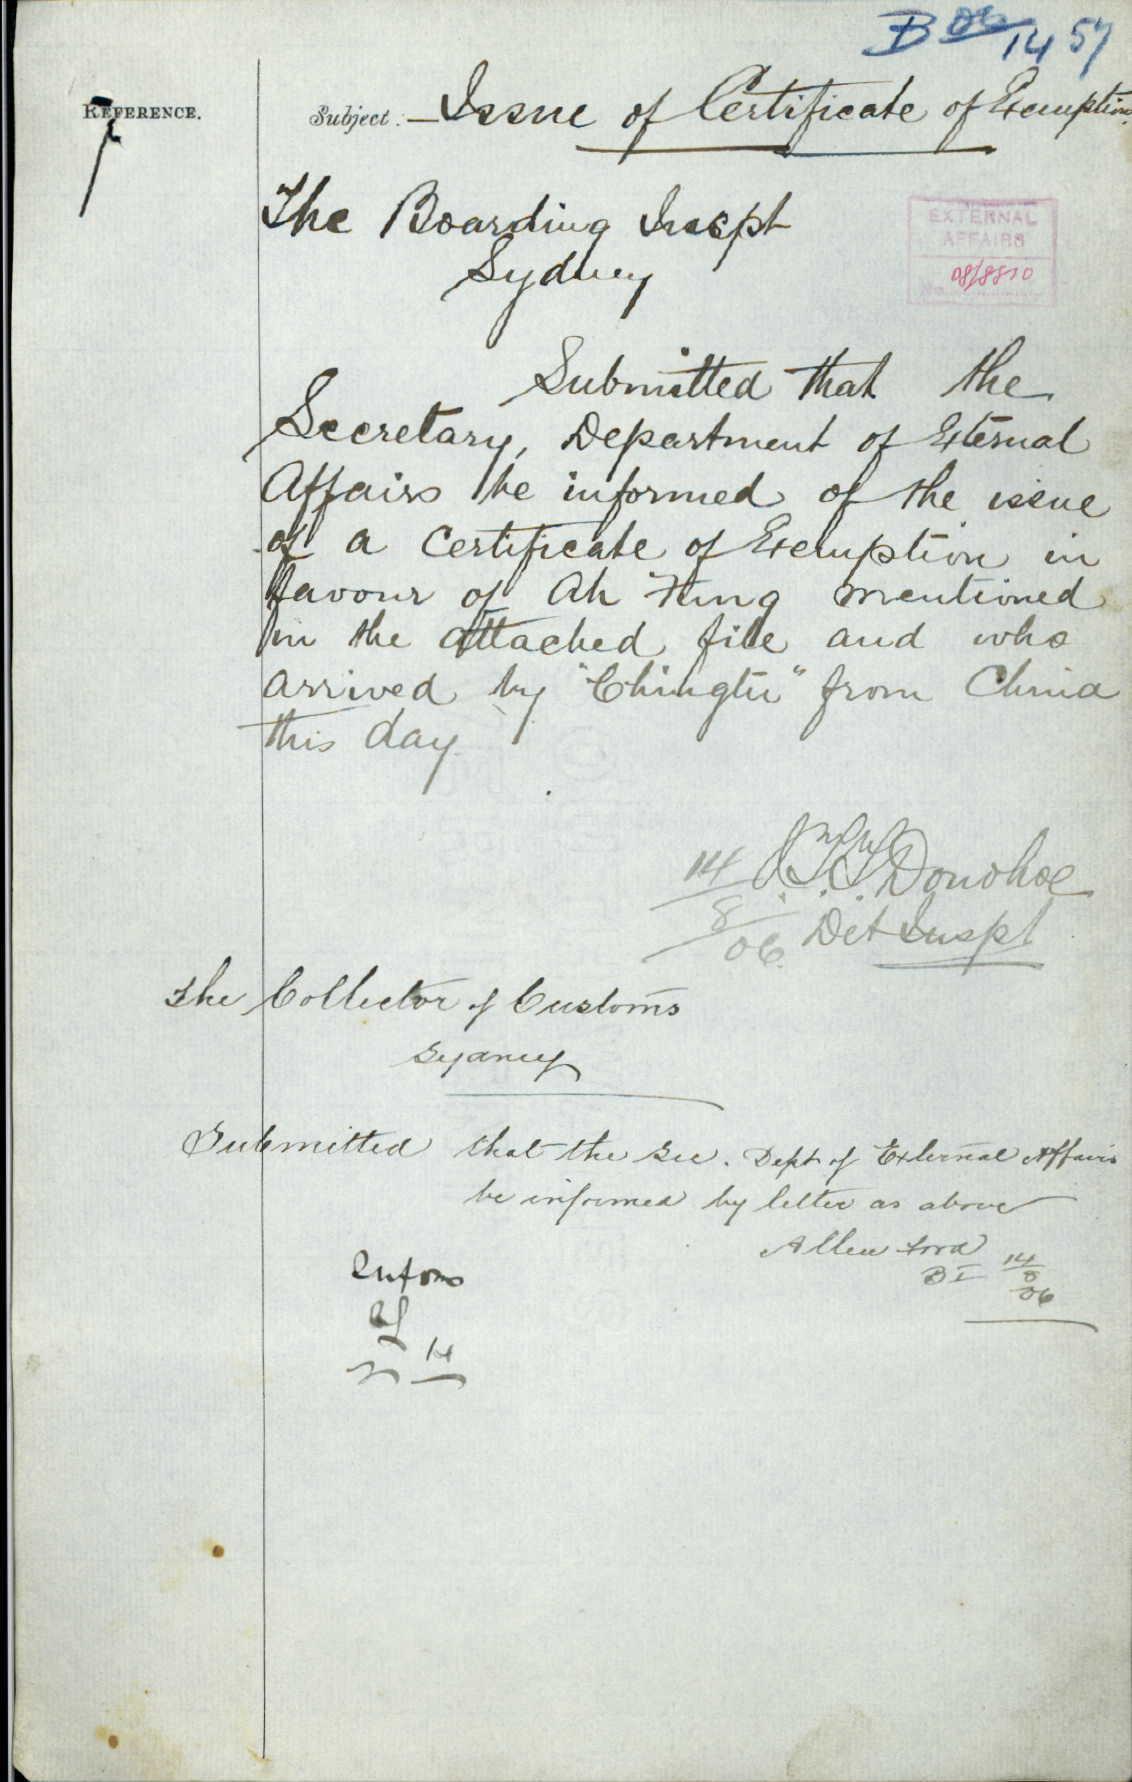 B 06/1457
REFERENCE.
Subject. — Issue of Certificate of Exemption
The Boarding Inspt
Sydney
EXTERNAL
AFFAIRS
Submitted that the
Secretary, Department of External
Affairs be informed of the issue
of a Certificate of Exemption in
favour of Ah Fung mentioned
in the attached file and who
arrived by "Chingtu" from China
this day.
14/8/06 Donohoe
Det Inspt
The Collector of Customs
Sydney
Submitted that the Sec. Dept of External Affairs
be informed by letter as above
Allen Ford
BI 14/8/06
Inform
14